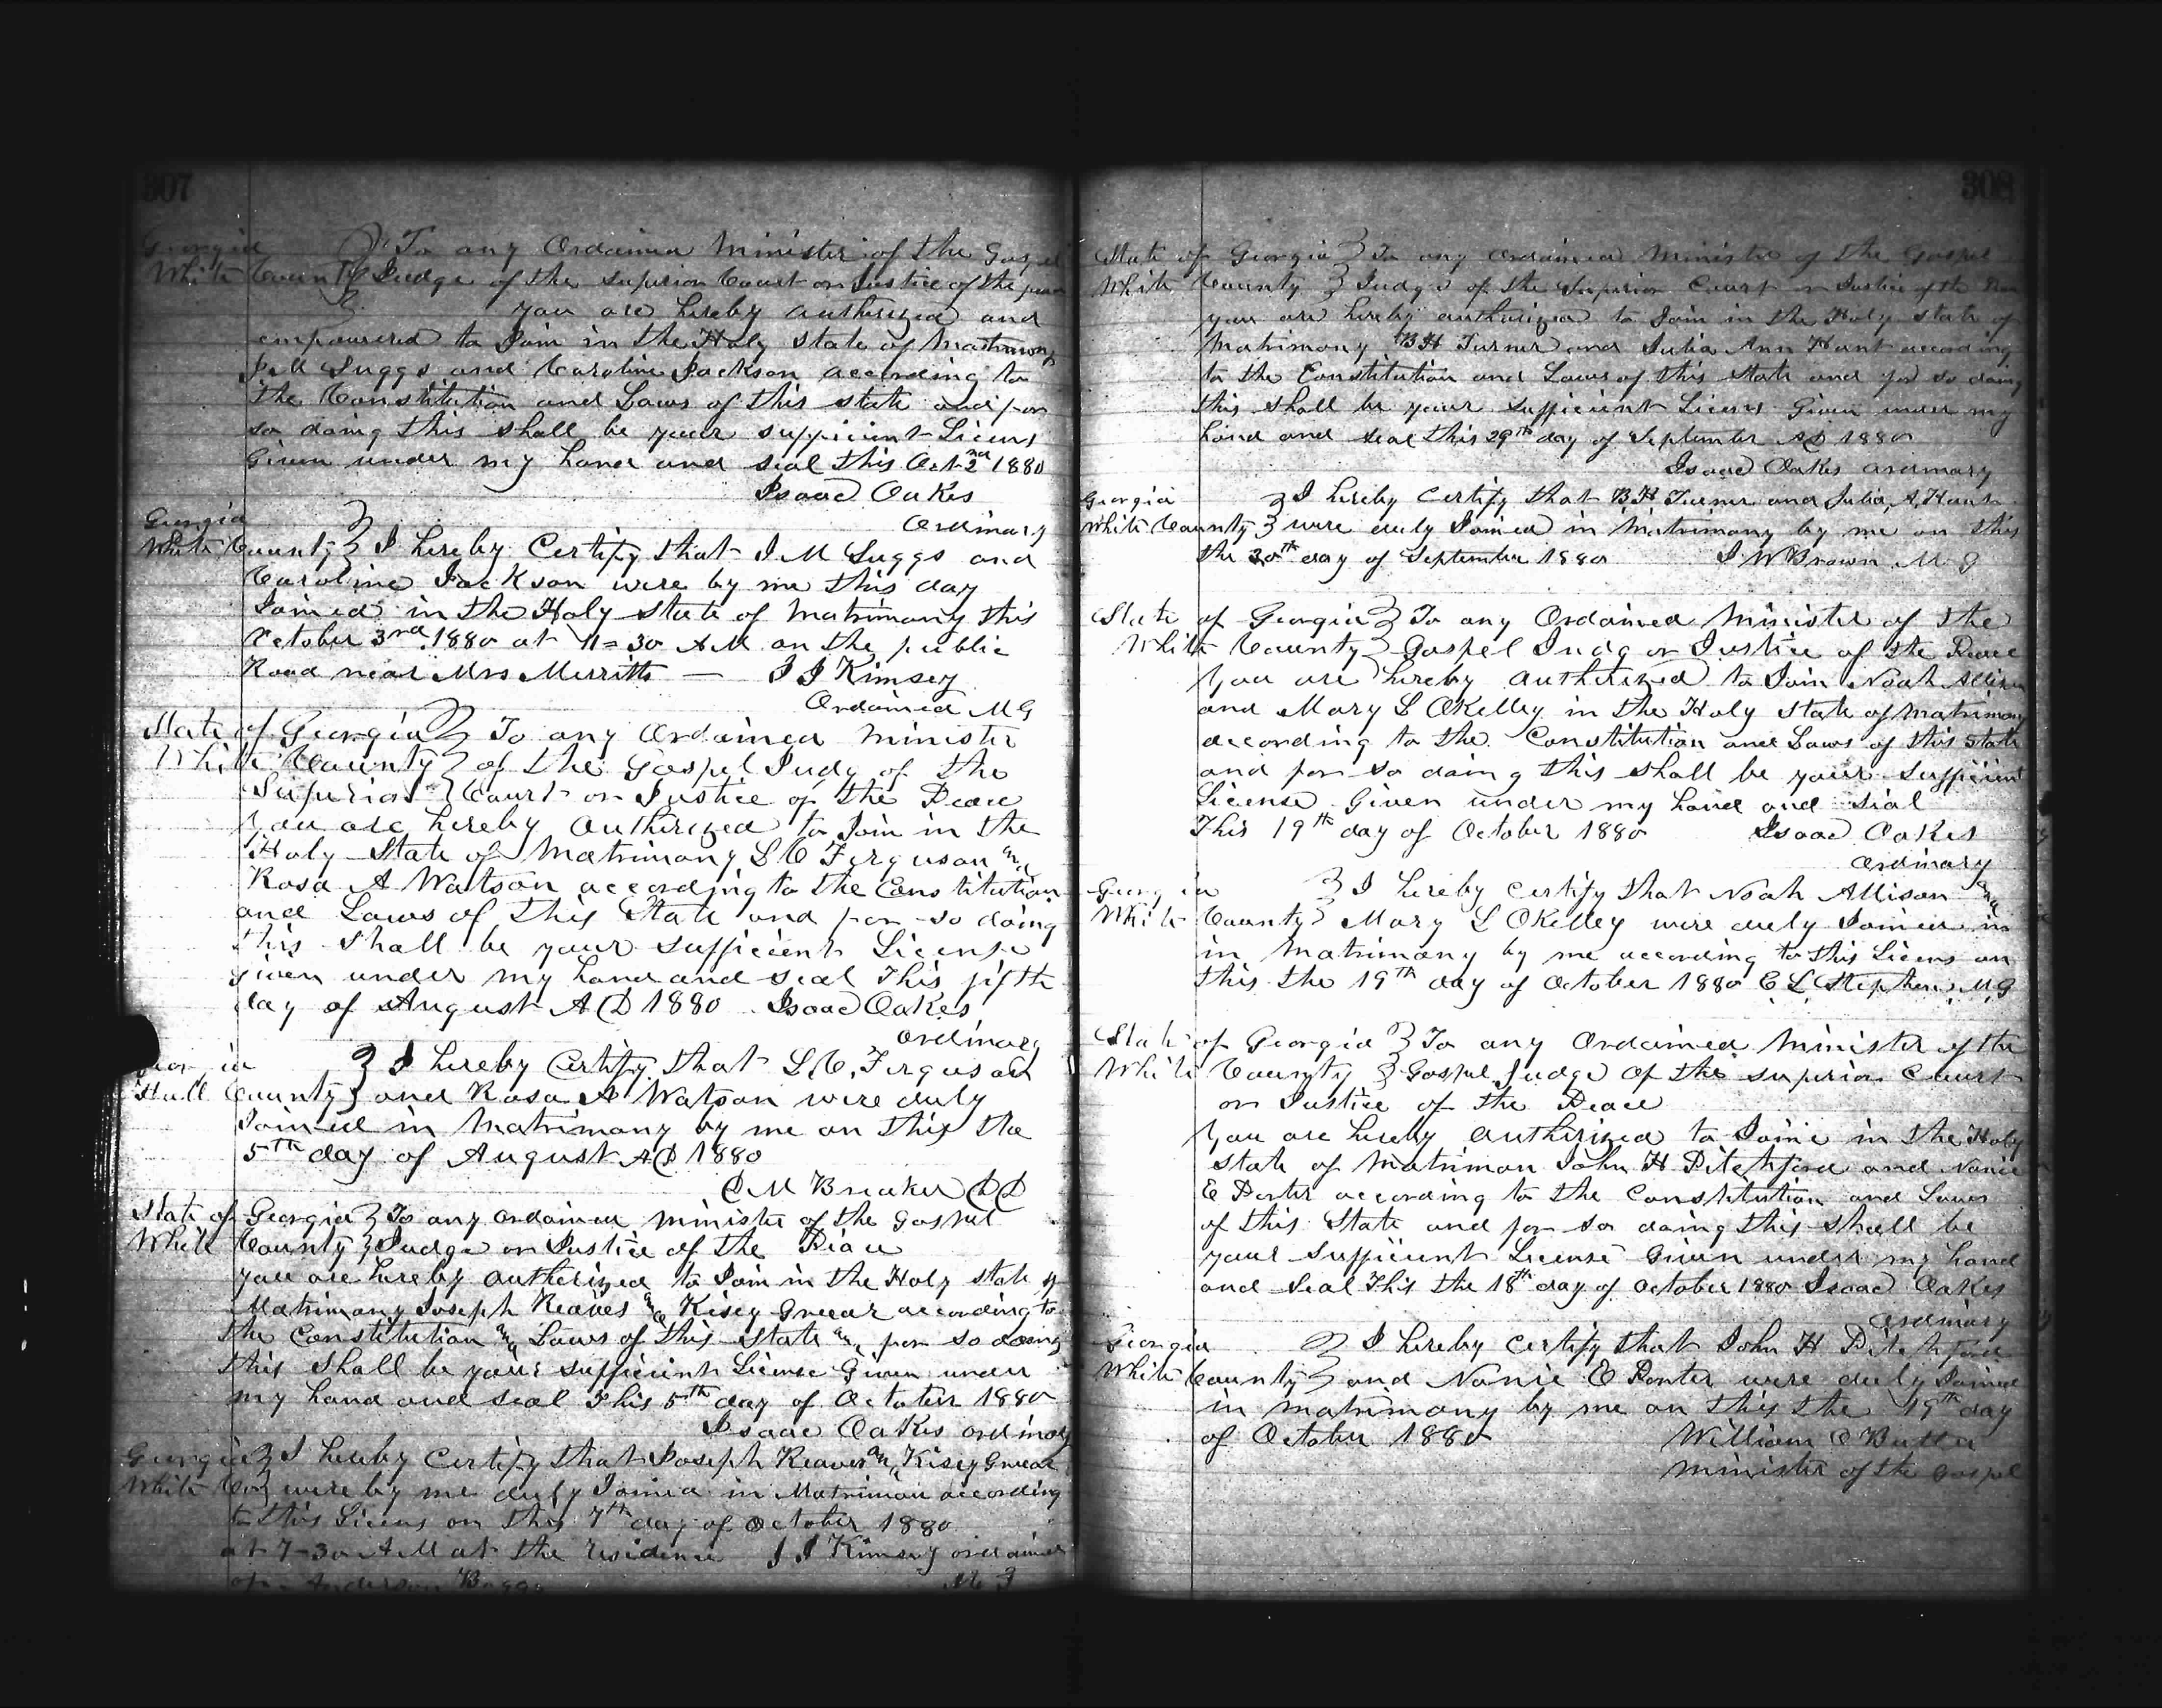 307
Georgia } To any Ordained Minister of the Gospel
White County } Judge of the Superior Court or Justice of the peace
you are hereby authorized and
empowered to Join in the Holy state of Matrimony
J M Suggs and Caroline Jackson according to
the Constitution and Laws of this state and for
so doing this shall be your sufficient Licens
Given under my hand and seal this Oct 2nd 1880
Isaac Oakes
Ordinary
Georgia
White County } I hereby Certify that J M Suggs and
Caroline Jackson were by me this day
Joined in the Holy state of Matrimony this
October 3rd 1880 at 11=30 AM on the public
Road near Mrs Merritts — J J Kimsey
Ordained M G
State of Georgia } To any Ordained Minister
White County } of the Gospel Judg of the
Superior Court or Justice of the Peace
You are hereby Authorized to Join in the
Holy State of Matrimony L C Ferguson and
Rosa A Watson according to the Constitution
and Laws of this State and for so doing
this shall be your sufficient License
given under my hand and seal This fifth
day of August A D 1880 Isaac Oakes
Ordinary
Georgia } I hereby Certify that L. C. Ferguson
Hall County } and Rosa A Watson were duly
Joined in Matrimony by me on this the
5th day of August AD 1880
D M Breaker D D
State of Georgia } To any ordained minister of the Gospel
White County } Judge or Justice of the Peace
you are hereby authorized to Join in the Holy state of
Matrimony Joseph Reaves and Kisey Greear according to
the Constitution and Laws of this State and for so doing
this shall be your sufficient License Given under
my hand and seal This 5th day of October 1880
Isaac Oakes ordinary
Georgia } I hereby Certify that Joseph Reaves and Kisey Greear
White Co } were by me duly Joined in Matrimon according
to this Licens on this 7th day of October 1880
at 7-30 AM at the residence J J Kimsey ordained
of Anderson Boggs M G
308
State of Georgia } To any ordained Minister of the Gospel
White County } Judge of the Superior Court or Justice of the Peace
you are hereby authorized to Join in the Holy state of
Matrimony B H Turner and Julia Ann Hunt according
to the Constitution and Laws of this State and for so doing
this shall be your sufficient Licens Given under my
hand and seal this 29th day of September AD 1880
Isaac Oakes ordinary
Georgia } I hereby Certify that B. H Turner and Julia A. Hunt
White County } were duly Joined in Matrimony by me on this
the 30th day of September 1880 J W Brown M G
State of Georgia } To any Ordained Minister of the
White County } Gospel Judg or Justice of the Peace
You are hereby authorized to Join Noah Allison
and Mary L OKelley in the Holy state of Matrimony
according to the Constitution and Laws of this state
and for so doing this shall be your sufficient
License Given under my hand and seal
This 19th day of October 1880 Isaac Oakes
Ordinary
Georgia } I hereby certify that Noah Allison and
White County } Mary L OKelley were duly Joined in
in Matrimony by me according to this Licens on
this the 19th day of October 1880 E L Stephens M. G
State of Georgia } To any Ordained Minister of the
White County } Gospel Judge Of the superior Court
or Justice of the Peace
You are hereby authorized to Joine in the Holy
state of Matrimon John H Pitchford and Nanie
E Porter according to the Constitution and Laws
of this State and for so doing this shall be
your sufficient License Given under my hand
and Seal This the 18th day of October 1880 Isaac Oakes
Ordinary
Georgia } I hereby certify that John H Pitchford
White County } and Nanie E Porter were duly Joined
in Matrimony by me on this the 19th day
of October 1880 William C Butler
Minister of the Gospel